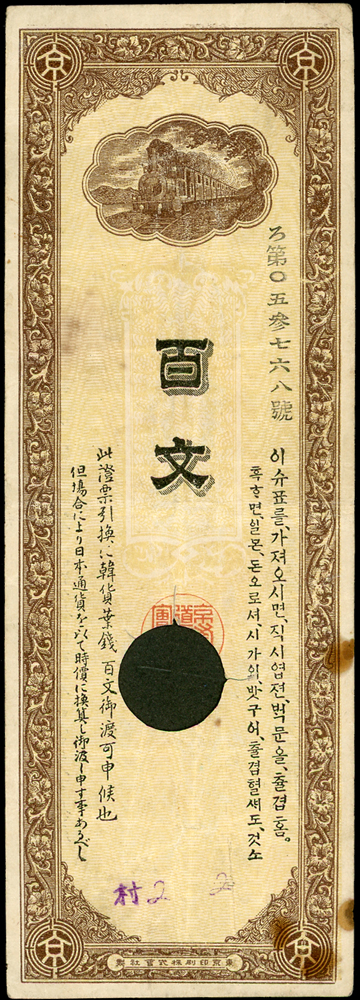 ろ第〇五參七六八號
百文
이슈표를、가져오시면、직시엽젼、벽문을、츌겹홈。
혹은면、일본、돈으로셔、시가의、밧구어、츌겹헐셰도、것소
此證票引換に韓貨葉錢百文御渡可申候也
但場合により日本通貨を以て時價に換算し御渡し申す事あるべし
村
東京印刷株式會社製